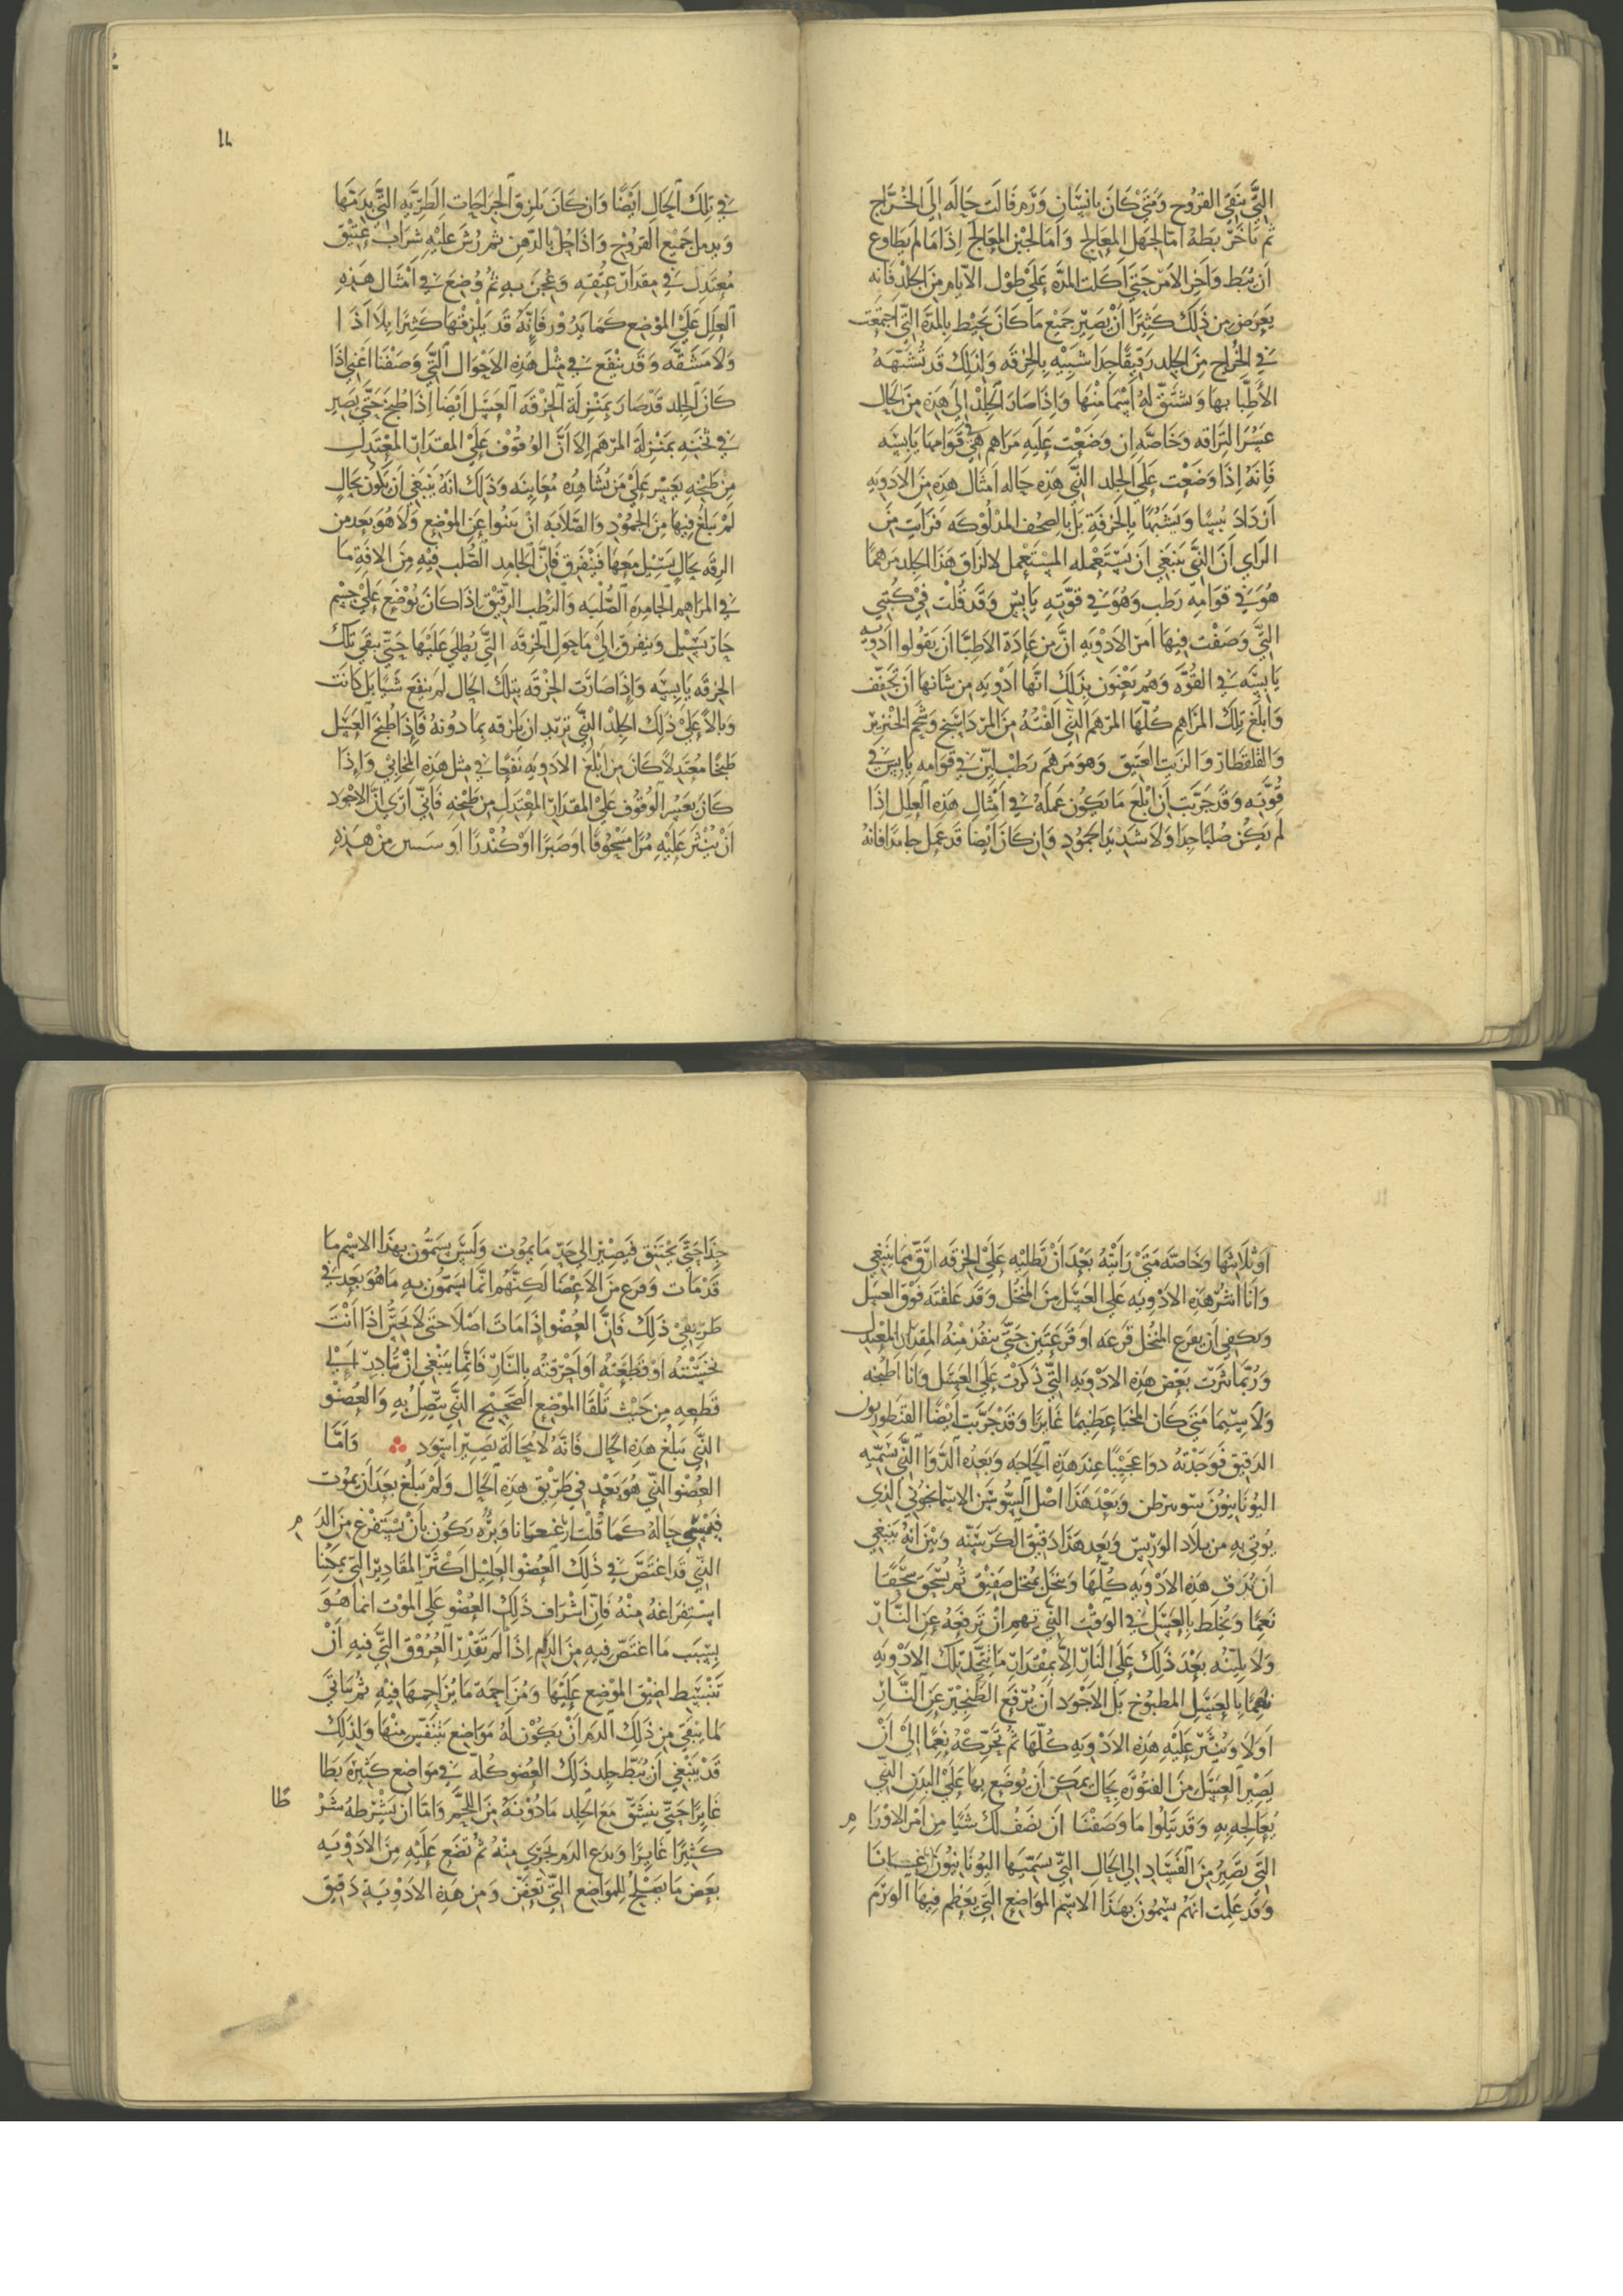 التي تنقي القروح ومتي كان بانسان ورم فالت حاله الي الخراج
ثم تاخر بطه اما لجهل المعالج واما لجبن المعالج اذا ما لم يطاوع
ان يبط واخر الامر حتي اكلت المدة علي طول الايام من الجلد فانه
يعرض من ذلك كثيرا ان يصير جميع ما كان يحيط بالمدة التي اجتمعت
في الخراج من الجلد رقيقا جدا شبيه بالخرقه ولذلك قد تشبهه
الاطبا بها وتشتق له اسما منها واذا صار الجلد الي هذه من الحال
عسر التزاقه وخاصه ان وضعت عليه مراهم هي في قوامها يابسه
فانه اذا وضعت علي الجلد الذي هذه حاله امثال هذه من الادويه
ازداد يبسا وتشبها بالخرقة بل بالصحف المدلوكه فرايت من
الراي ان الذي ينبغي ان يستعمله المستعمل لالزاق هذا الجلد مرهما
هو في قوامه رطب وهو في قوته يابس وقد قلت في كتبي
التي وصفت فيها امر الادويه ان من عادة الاطبا ان يقولوا ادويه
يابسه في القوه وهم يعنون بذلك انها ادويه من شانها ان تجفف
وابلغ تلك المراهم كلها المرهم الذي الفته من المرداسنج وشحم الخنزير
والقلقطار والزيت العتيق وهو مرهم رطب لين في قوامه يابس في
قوته وقد جربت ان ابلغ ما يكون عمله في امثال هذه العلل اذا
لم يكن صلبا جدا ولا شديد الجمود وان كان ايضا قد عمل جامدا فانه
في تلك الحال ايضا وان كان يلزق الجراحات الطريه التي بدمها
ويدمل جميع القروح واذا حل بالدهن ثم رش عليه شراب عتيق
معتدل في مقدار عتقه وعجن به ثم وضع في امثال هذه
العلل علي الموضع كما يدور فانه قد يلزقها كثيرا بلا اذا
ولا مشقه وقد ينفع في مثل هذه الاحوال التي وصفنا اعني اذا
كان الجلد قد صار بمنزلة الخرقه العسل ايضا اذا طبخ حتي يصير
في ثخنه بمنزلة المرهم الا ان الوقوف علي المقدار المعتدل
من طبخه يعسر علي من يشاهده معاينه وذلك انه ينبغي ان يكون بحال
لم يبلغ فيها من الجمود والصلابه ان ينبوا عن الموضع ولا هو بعد من
الرقه بحال يسيل معها فيتفرق فان الجامد الصلب فيه من الافة ما
في المراهم الجامده الصلبه والرطب الرقيق اذا كان يوضع علي جسم
حار يسيل ويتفرق الي ما حول الخرقه التي يطلي عليها حتي تبقي تلك
الخرقه يابسه واذا صارت الخرقه بتلك الحال لم تنفع شيا بل كانت
وبالا علي ذلك الجلد الذي تريد ان يلزقه بما دونه فاذا طبخ العسل
طبخا معتدلا كان من ابلغ الادويه نفعا في مثل هذه المخابي واذا
كان يعسر الوقوف علي المقدار المعتدل من طبخه فاني اري ان الاجود
ان ينثر عليه مرا مسحوقا او صبرا او كندرا او من هذه
او ثلاثتها وخاصه متي رايته بعد ان تطليه علي الخرقه ارق مما ينبغي
وانا انثر هذه الادويه علي العسل من المنخل وقد علقته فوق العسل
ويكفي ان يقرع المنخل قرعه او قرعتين حتي ينفذ منه المقدار المعتدل
وربما نثرت بعض هذه الادويه التي ذكرت علي العسل وانا اطبخه
ولا سيما متي كان المخبا عظيما غايرا وقد جربت ايضا القنطوريون
الدقيق فوجدته دوا عجيبا عند هذه الحاجه وبعده الدوا الذي يسميه
اليونانيون وبعد هذا اصل السوسن الاسمانجوني الذي
يوتي به من بلاد وبعد هذا دقيق الكرسنه وبين انه ينبغي
ان تدق هذه الادويه كلها وتنخل بمنخل صفيق ثم تسحق سحقا
نعما وتخلط بالعسل في الوقت الذي تهم ان ترفعه عن النار
ولا يلبثه بعد ذلك علي النار الا بمقدار ما تتحد تلك الادويه
نعما بالعسل المطبوخ بل الاجود ان يرفع الطنجير عن النار
اولا وينثر عليه هذه الادويه كلها ثم تحركه نعما الي ان
يصير العسل من الفتوره بحال يمكن ان يوضع بها علي البدن الذي
يعالجه به وقد يتلوا ما وصفنا ان نصف لك شيا من امر الاورام
التي تصير من الفساد الي الحال التي يسميها اليونانيون غانغرانا
وقد علمت انهم يسمون بهذا الاسم المواضع التي يعظم فيها الورم
جدا حتي يختنق فيصير الي حد ما يموت وليس يسمون بهذا الاسم ما
قد مات وفرع من الاعضا لكنهم انما يسمون به ما هو بعد في
طريق ذلك فان العضو اذا مات اصلا حتي لا يحس اذا انت
نخسته او قطعته او احرقته بالنار فانما ينبغي ان تبادر الي
قطعه من حيث تلقا الموضع الصحيح الذي يتصل به والعضو
الذي يبلغ هذه الحال فانه لا محالة يصير اسود واما
العضو الذي هو بعد في طريق هذه الحال ولم يبلغ بعد ان يموت
فيسمي حاله كما قلت غنغرانا وبروه يكون بان يستفرغ من الدم
الذي قد اغتص في ذلك العضو العليل اكثر المقادير التي يمكننا
استفراغه منه فان اشراف ذلك العضو علي الموت انما هو
بسبب ما اغتص فيه من الدم اذا لم تقدر العروق التي فيه ان
تنبسط لضيق الموضع عليها ومزاحمة ما يزاحمها فيه ثم يتاتي
لما يبقي من ذلك الدم ان يكون له مواضع يتنفس منها ولذلك
قد ينبغي ان يبط جلد ذلك العضو كله في مواضع كثيرة بطا
غايرا حتي ينشق مع الجلد ما دونه من اللحم واما ان يشرطه شرطا
كثيرا غايرا وتدع الدم يجري منه ثم تضع عليه من الادويه
بعض ما يصلح للمواضع التي تعفن ومن هذه الادويه دقيق